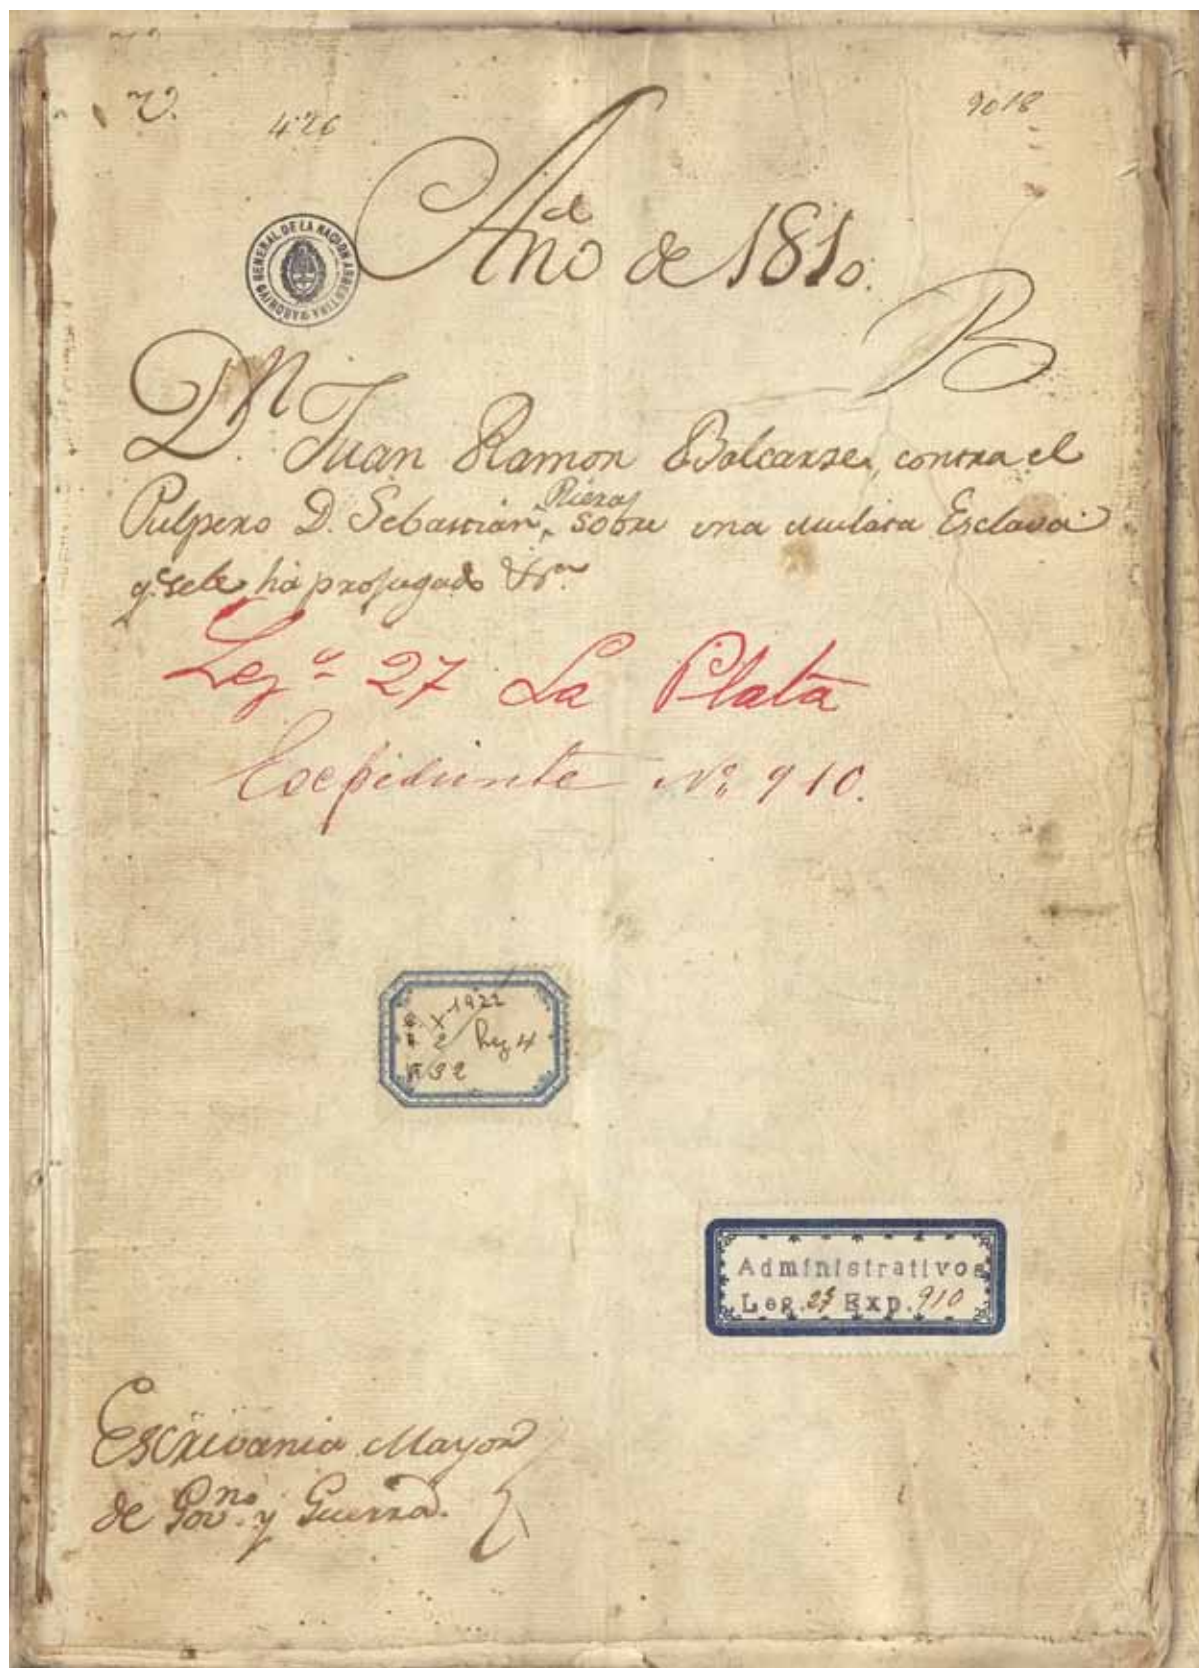 426
9018
Año de 1810.
ARCHIVO GENERAL DE LA NACION ARGENTINA
B
Dn. Juan Ramon Balcarse, contra el
Pulpero D. Sebastian Riera sobre una mulata Esclava
q.e sele ha profugado
Leg.o 27 La Plata
Expediente No. 910.
X-1922
2 Leg 4
32
Administrativos
Leg. 27 Exp. 910
Escrivania Mayor
de Gov.no y Guerra.